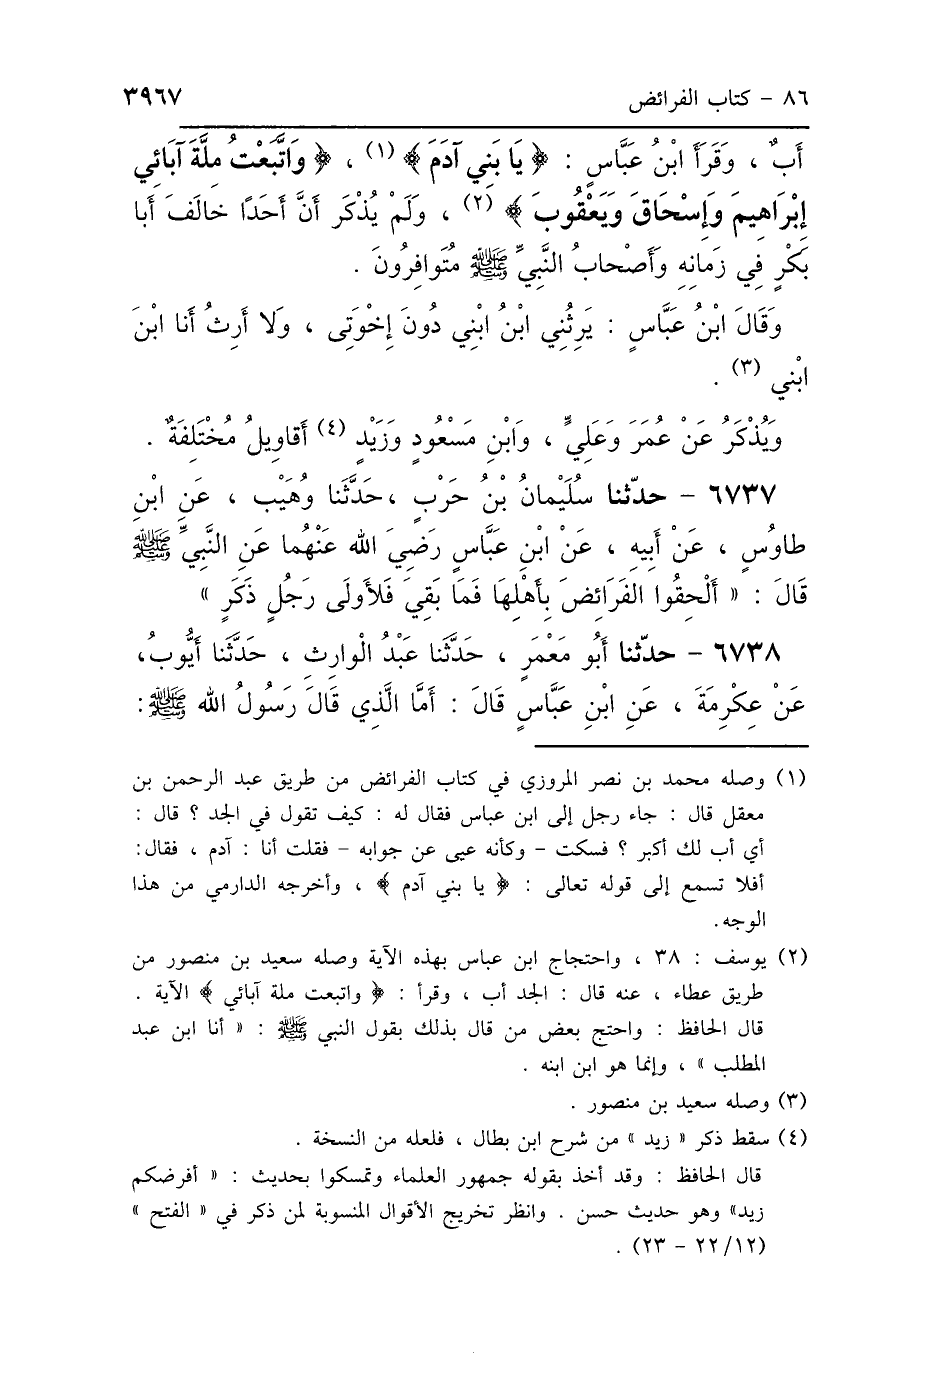 ٨٦ - كتاب الفرائض ٣٩٦٧
أَبٌ ، وَقَرَأَ ابْنُ عَبَّاسٍ : ﴿ يَا بَنِي آدَمَ ﴾ (١) ، ﴿ وَاتَّبَعْتُ مِلَّةَ آبَائِي
إِبْرَاهِيمَ وَإِسْحَاقَ وَيَعْقُوبَ ﴾ (٢) ، وَلَمْ يُذْكَر أَنَّ أَحَدًا خالَفَ أَبا
بَكْرٍ فِي زَمانِهِ وَأَصْحابُ النَّبِيِّ ﷺ مُتَوافِرُونَ .
وَقَالَ ابْنُ عَبَّاسٍ : يَرِثُنِي ابْنُ ابْنِي دُونَ إِخْوَتِى ، وَلا أَرِثُ أَنا ابْنَ
ابْنِي (٣) .
وَيُذْكَرُ عَنْ عُمَرَ وَعَلِيٍّ ، وَابْنِ مَسْعُودٍ وَزَيْدٍ (٤) أَقاوِيلُ مُخْتَلِفَةٌ .
٦٧٣٧ - حدّثنا سُلَيْمانُ بْنُ حَرْبٍ ، حَدَّثَنا وُهَيْب ، عَنِ ابْنِ
طاوُسٍ ، عَنْ أَبِيهِ ، عَنْ ابْنِ عَبَّاسٍ رَضِيَ الله عَنْهُما عَنِ النَّبِيِّ ﷺ
قَالَ : « أَلْحِقُوا الفَرَائِضَ بِأَهْلِهَا فَمَا بَقِيَ فَلأَولَى رَجُلٍ ذَكَرٍ »
٦٧٣٨ - حدّثنا أَبُو مَعْمَرٍ ، حَدَّثَنا عَبْدُ الْوارِثِ ، حَدَّثَنا أَيُّوبُ،
عَنْ عِكْرِمَةَ ، عَنِ ابْنِ عَبَّاسٍ قَالَ : أَمَّا الَّذِي قَالَ رَسُولُ الله ﷺ :
(١) وصله محمد بن نصر المروزي في كتاب الفرائض من طريق عبد الرحمن بن
معقل قال : جاء رجل إلى ابن عباس فقال له : كيف تقول في الجد ؟ قال :
أي أب لك أكبر ؟ فسكت - وكأنه عيى عن جوابه - فقلت أنا : آدم ، فقال:
أفلا تسمع إلى قوله تعالى : ﴿ يا بني آدم ﴾ ، وأخرجه الدارمي من هذا
الوجه.
(٢) يوسف : ٣٨ ، واحتجاج ابن عباس بهذه الآية وصله سعيد بن منصور من
طريق عطاء ، عنه قال : الجد أب ، وقرأ : ﴿ واتبعت ملة آبائي ﴾ الآية .
قال الحافظ : واحتج بعض من قال بذلك بقول النبي ﷺ : « أنا ابن عبد
المطلب » ، وإنما هو ابن ابنه .
(٣) وصله سعيد بن منصور .
(٤) سقط ذكر « زيد » من شرح ابن بطال ، فلعله من النسخة .
قال الحافظ : وقد أخذ بقوله جمهور العلماء وتمسكوا بحديث : « أفرضكم
زيد» وهو حديث حسن . وانظر تخريج الأقوال المنسوبة لمن ذكر في « الفتح »
(٢٢/١٢ - ٢٣) .